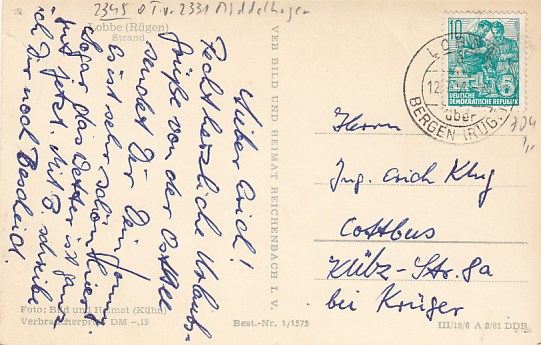 2345 o T.v. 2331 Middelhagen
Lobbe (Rügen)
Strand
Lieber Erich!
Recht herzliche Urlaubs-
grüße von der Ostsee
sendet Dir Dein
Es ist sehr schön hier
sogar das Wetter ist ganz
gut jetzt. Mit B. schreibe
ich Dir noch Bescheid.
Foto: Bild und Heimat (Kühn)
Verbraucherpreis DM -,15
Best.-Nr. 1/1575
VEB BILD UND HEIMAT REICHENBACH I. V.
10
5
DEUTSCHE
DEMOKRATISCHE REPUBLIK
12.
über
BERGEN (RÜG.)
Herrn
Ing. Erich Klug
Cottbus
Külz-Str. 8a
bei Krüger
III/18/6 A 2/61 DDR